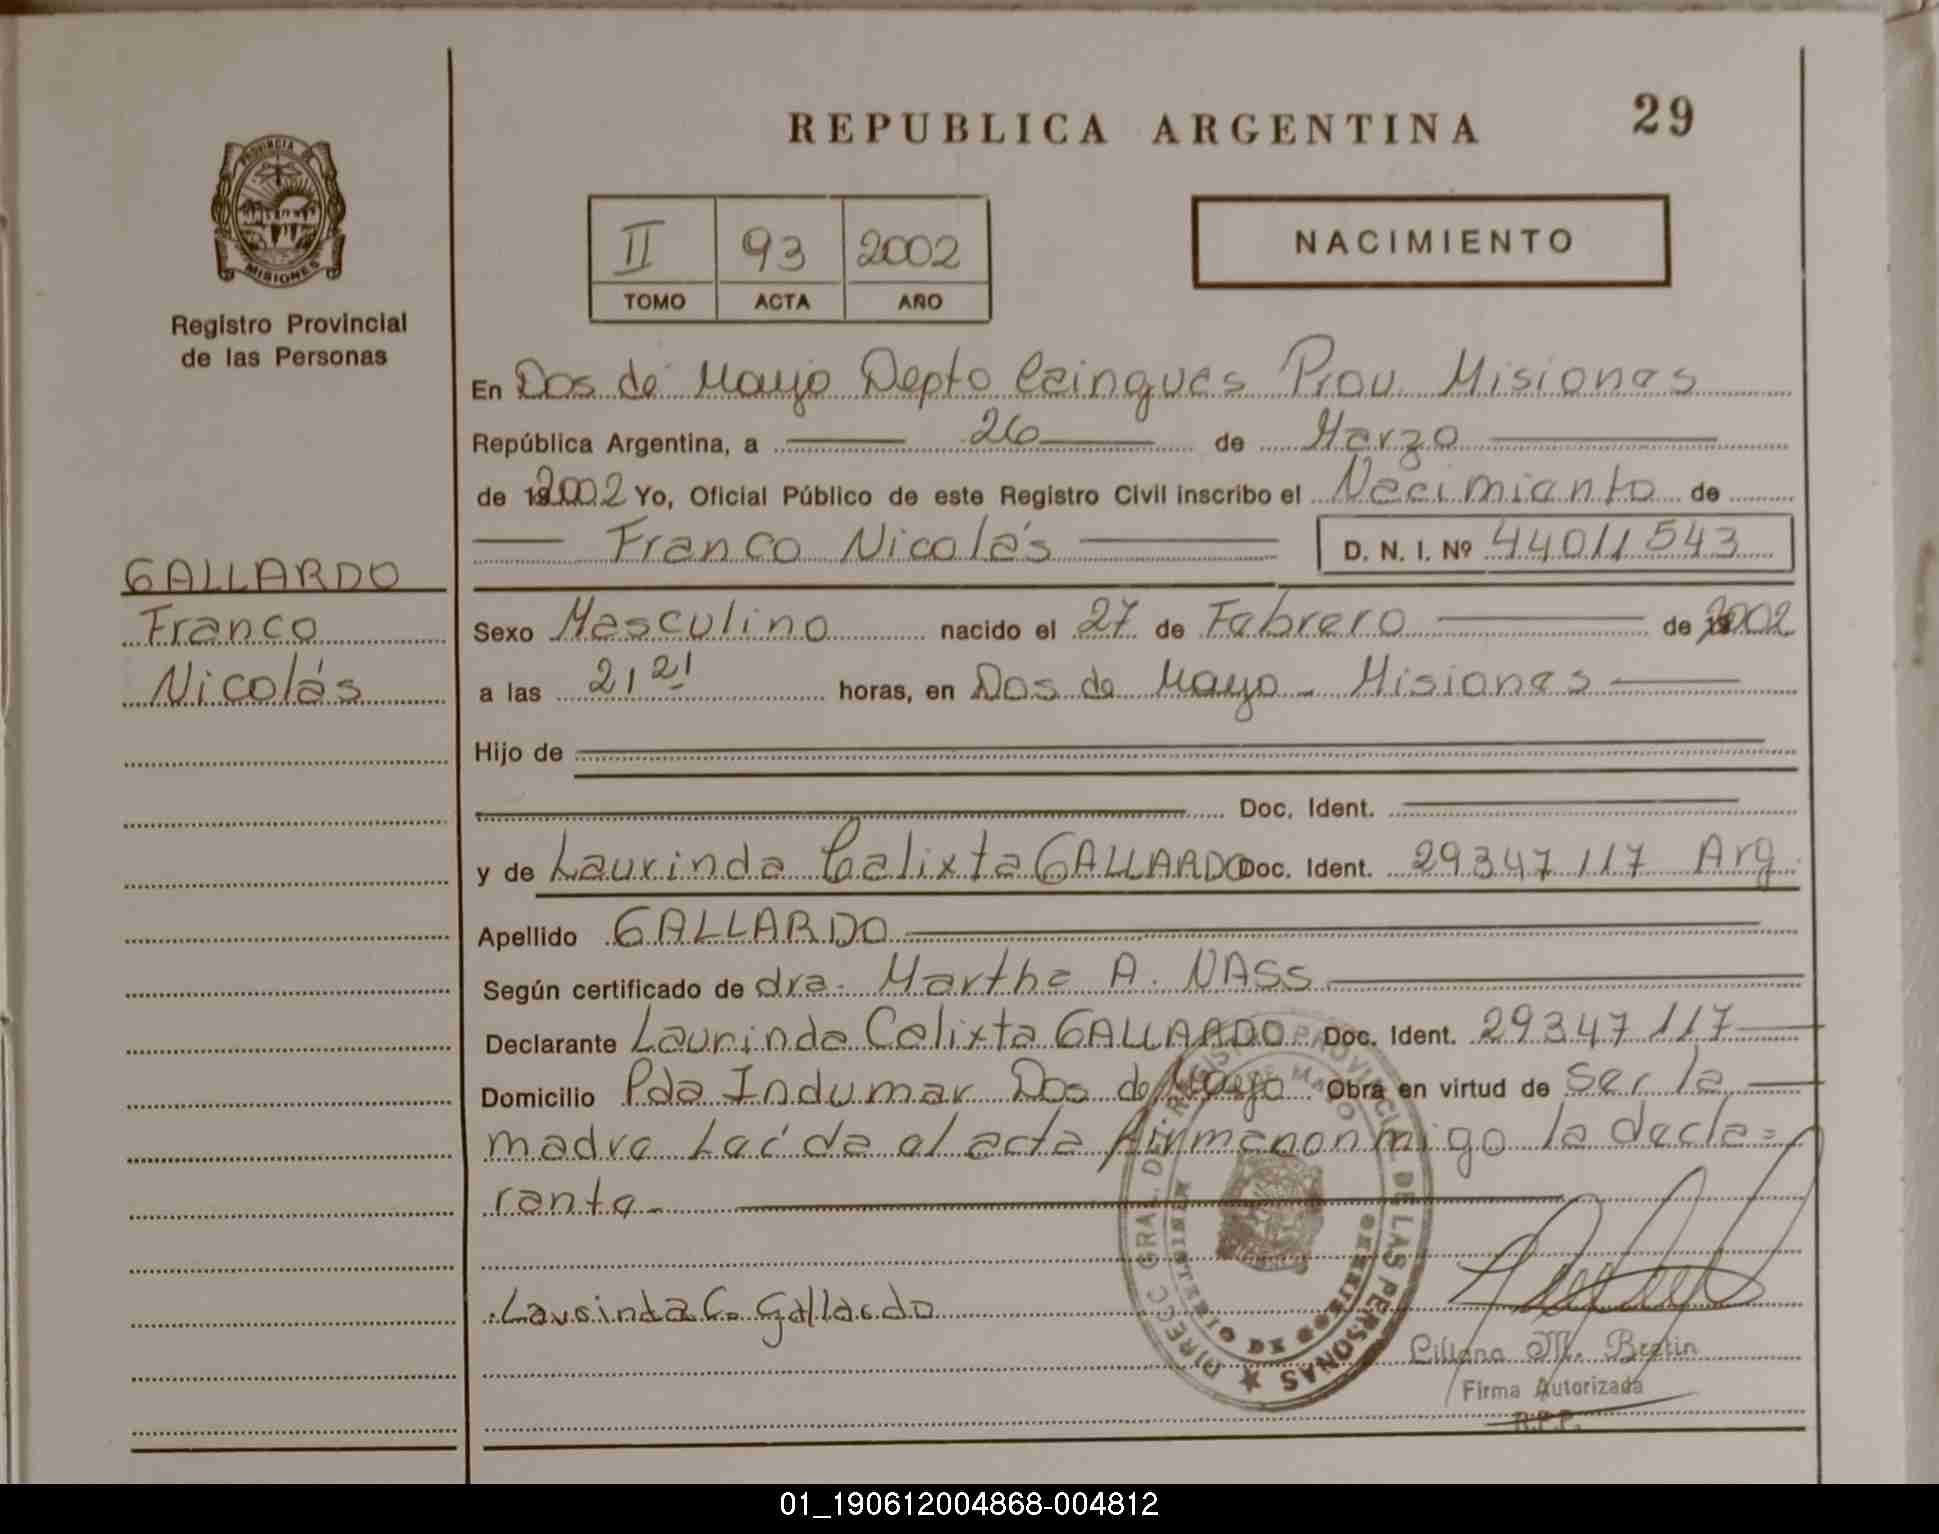 REPUBLICA ARGENTINA
29
PROVINCIA DE
MISIONES
Registro Provincial
de las Personas
II 93 2002
TOMO ACTA AÑO
NACIMIENTO
En Dos de Mayo Depto Caingues Prov. Misiones
República Argentina, a 26 de Marzo
de 2002 Yo, Oficial Público de este Registro Civil inscribo el Nacimiento de
Franco Nicolás D. N. I. Nº 44011543
GALLARDO
Franco
Nicolás
Sexo Masculino nacido el 27 de Febrero de 2002
a las 21 21 horas, en Dos de Mayo - Misiones
Hijo de
Doc. Ident.
y de Laurinda Calixta GALLARDO Doc. Ident. 29347117 Arg.
Apellido GALLARDO
Según certificado de dra. Martha A. NASS
Declarante Laurinda Calixta GALLARDO Doc. Ident. 29347117
Domicilio Pda Indumar Dos de Mayo Obra en virtud de ser la
madre Leída el acta firma conmigo la decla=
rante.
Laurinda C. Gallardo
DIRECC. GRAL. DEL REGISTRO PROVINCIAL DE LAS PERSONAS
Liliana M. Bretin
Firma Autorizada
R.P.P.
01_190612004868-004812